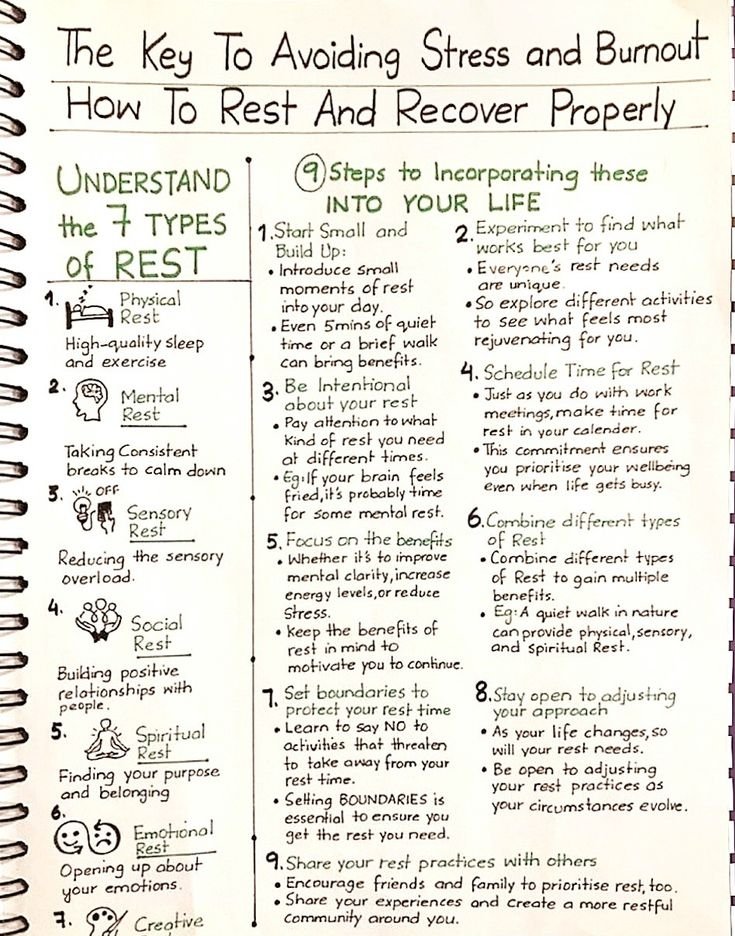 The Key To Avoiding Stress and Burnout
How To Rest And Recover Properly
UNDERSTAND
the 7 TYPES
of REST
1. Physical
Rest
High-quality sleep
and exercise
2. Mental
Rest
Taking Consistent
breaks to calm down
3. OFF
Sensory
Rest
Reducing the sensory
overload.
4. Social
Rest
Building positive
relationships with
people.
5. Spiritual
Rest
Finding your purpose
and belonging
6. Emotional
Rest
Opening up about
your emotions.
7. Creative
9 Steps to Incorporating these
INTO YOUR LIFE
1. Start Small and
Build Up:
• Introduce small
moments of rest
into your day.
• Even 5mins of quiet
time or a brief walk
can bring benefits.
2. Experiment to find what
works best for you
• Everyone's rest needs
are unique.
• So explore different activities
to see what feels most
rejuvenating for you.
3. Be Intentional
about your rest
• Pay attention to what
kind of rest you need
at different times.
• Eg: If your brain feels
fried, it's probably time
for some mental rest.
4. Schedule Time for Rest
• Just as you do with work
meetings, make time for
rest in your calender.
• This commitment ensures
you prioritise your wellbeing
even when life gets busy.
5. Focus on the benefits
• Whether it's to improve
mental clarity, increase
energy levels, or reduce
stress.
• Keep the benefits of
rest in mind to
motivate you to continue.
6. Combine different types
of Rest
• Combine different types
of Rest to gain multiple
benefits.
• Eg: A quiet walk in nature
can provide physical, sensory,
and spiritual Rest.
7. Set boundaries to
protect your rest time
• Learn to say NO to
activities that threaten
to take away from your
rest time.
• Setting BOUNDARIES is
essential to ensure you
get the rest you need.
8. Stay open to adjusting
your approach
• As your life changes, so
will your rest needs.
• Be open to adjusting
your rest practices as
your circumstances evolve.
9. Share your rest practices with others
• Encourage friends and family to prioritise rest, too.
• Share your experiences and create a more restful
community around you.